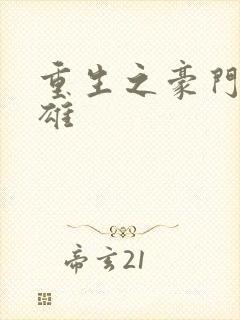 重生之豪門
雄
帝玄21